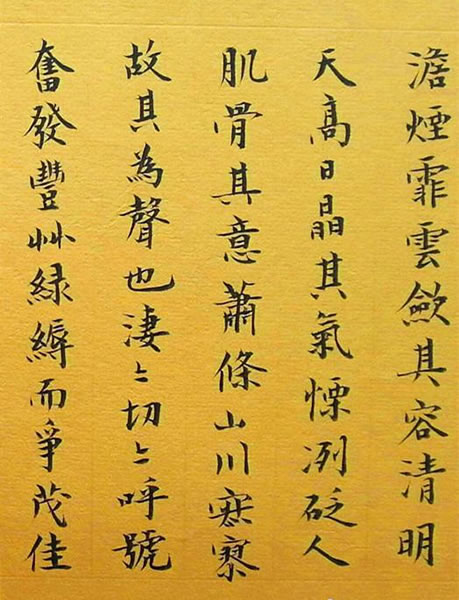 澹煙霏雲歛其容清明
天高日晶其氣慄冽砭人
肌骨其意蕭條山川寂寥
故其為聲也淒〻切〻呼號
奮發豐艸緑縟而爭茂佳